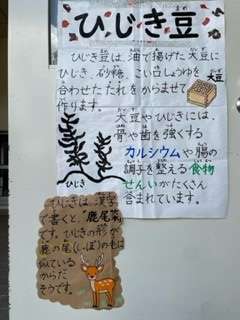 ひじき豆
ひじき豆は、油で揚げた大豆に
ひじき、砂糖、こい口しょうゆを
合わせたたれをからませて
作ります。
大豆
大豆やひじきには、
骨や歯を強くする
カルシウムや腸の
調子を整える食物
せんいがたくさん
含まれています。
ひじき
ひじきは、漢字
で書くと、"鹿尾菜"
です。ひじきの形が
鹿の尾(しっぽ)の毛に
似ている
からだ
そうです。